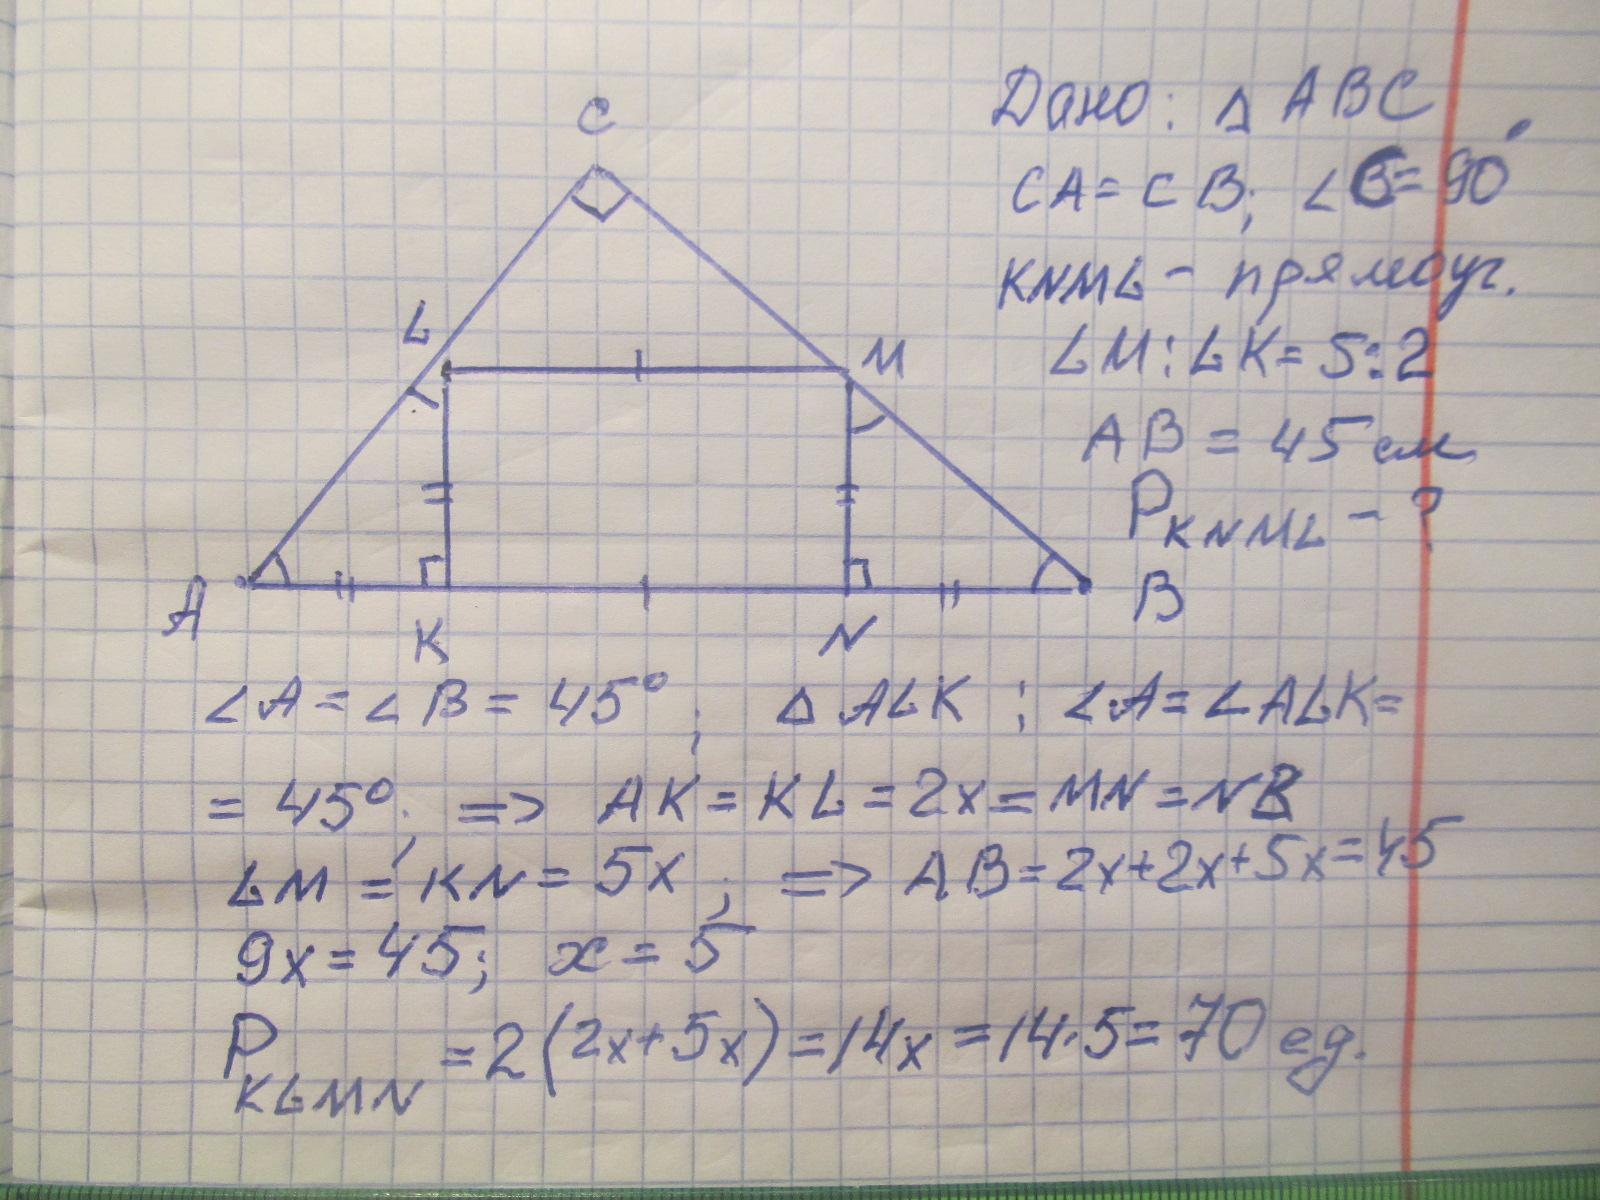 Дано: △ ABC
CA = CB; ∠C = 90°
KNML - прямоуг.
LM : LK = 5:2
AB = 45 см
P KNML - ?
C
L
M
A
K
N
B
∠A = ∠B = 45°; △ ALK; ∠A = ∠ALK =
= 45°; => AK = KL = 2x = MN = NB
LM = KN = 5x; => AB = 2x+2x+5x = 45
9x = 45; x = 5
P KLMN = 2(2x+5x) = 14x = 14·5 = 70 ед.